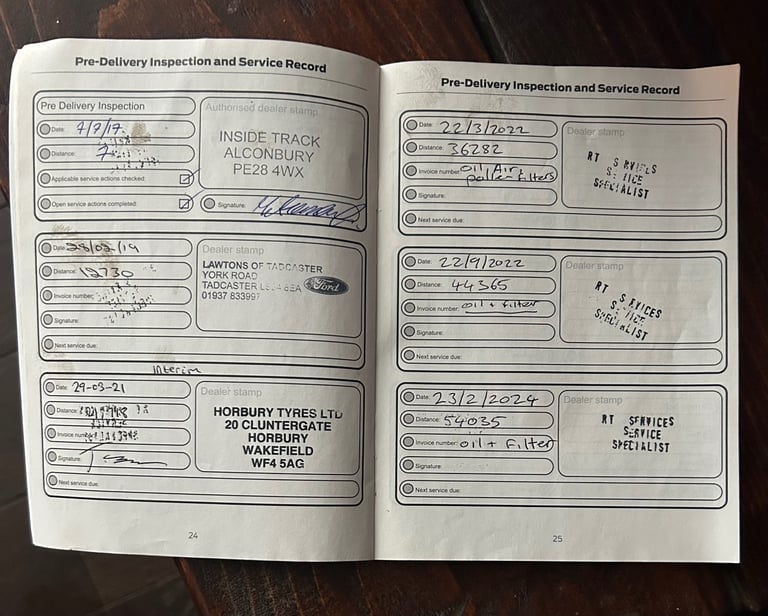 Pre-Delivery Inspection and Service Record
Pre Delivery Inspection
Date: 7/7/17.
Distance: 7
Applicable service actions checked:
Open service actions completed:
Authorised dealer stamp
INSIDE TRACK
ALCONBURY
PE28 4WX
Signature:
Date: 28/02/19
Distance: 12730
Invoice number:
Signature:
Next service due:
Dealer stamp
LAWTONS OF TADCASTER
YORK ROAD
TADCASTER
01937 833997
Ford
Interim
Date: 29-03-21
Distance:
Invoice number:
Signature:
Next service due:
Dealer stamp
HORBURY TYRES LTD
20 CLUNTERGATE
HORBURY
WAKEFIELD
WF4 5AG
24
Pre-Delivery Inspection and Service Record
Date: 22/3/2022
Distance: 36282
Invoice number: oil Air
pollen filters
Signature:
Next service due:
Dealer stamp
RT SERVICES
SERVICE
SPECIALIST
Date: 22/9/2022
Distance: 44365
Invoice number: oil + filter
Signature:
Next service due:
Dealer stamp
RT SERVICES
SERVICE
SPECIALIST
Date: 23/2/2024
Distance: 54035
Invoice number: oil + Filter
Signature:
Next service due:
Dealer stamp
RT SERVICES
SERVICE
SPECIALIST
25